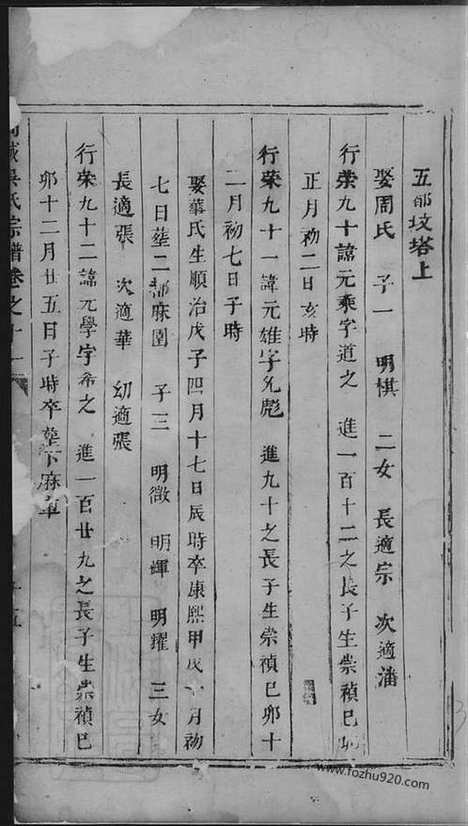 五都坟塔上
娶周氏 子一 明棋 二女 長適宗 次適潘
行崇九十諱元乘字道之 進一百十二之長子生崇禎己卯
正月初二日亥時
行崇九十一諱元雄字允彪 進九十之長子生崇禎己卯十
二月初七日子時
娶華氏生順治戊子四月十七日辰時卒康熙甲戌 月初
七日塟二都麻園 子三 明徵 明輝 明耀 三女
長適張 次適華 幼適張
行崇九十二諱元學字希之 進一百廿九之長子生崇禎己
卯十二月廿五日子時卒塟下麻車
吳氏宗譜卷之十一
十五
www.fozhu920.com